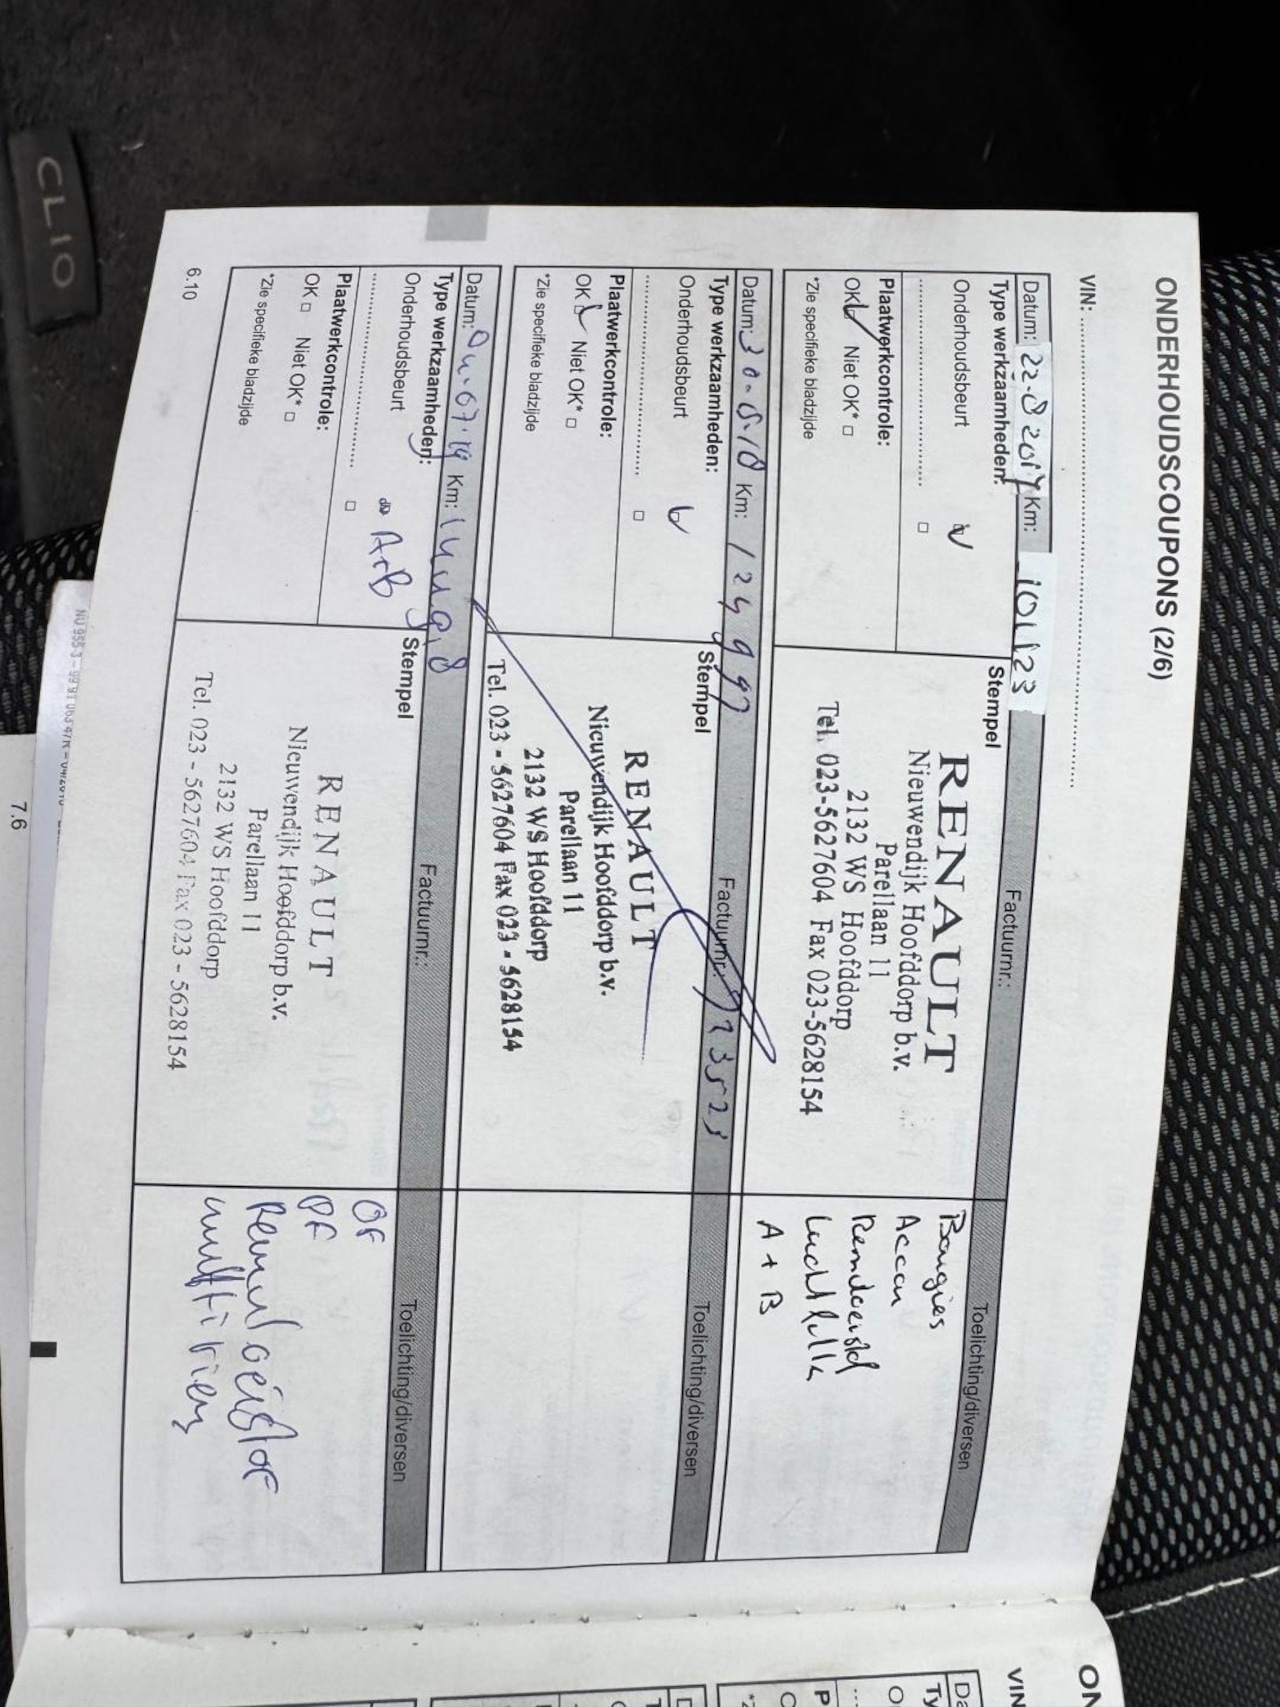 ONDERHOUDSCOUPONS (2/6)
VIN:
Datum: 22.8 2017 Km: 101123 Factuurnr.: Toelichting/diversen
Type werkzaamheden: Stempel
Onderhoudsbeurt
Plaatwerkcontrole:
OK Niet OK*
*Zie specifieke bladzijde
RENAULT
Nieuwendijk Hoofddorp b.v.
Parellaan 11
2132 WS Hoofddorp
Tel. 023-5627604 Fax 023-5628154
Bougies
Accu
Remvloeistof
Luchtfilter
A + B
Datum: 30-5-18 Km: 124997 Factuurnr.: Toelichting/diversen
Type werkzaamheden: Stempel
Onderhoudsbeurt
Plaatwerkcontrole:
OK Niet OK*
*Zie specifieke bladzijde
RENAULT
Nieuwendijk Hoofddorp b.v.
Parellaan 11
2132 WS Hoofddorp
Tel. 023 - 5627604 Fax 023 - 5628154
Datum: 04.07.19 Km: Factuurnr.: Toelichting/diversen
Type werkzaamheden: Stempel
Onderhoudsbeurt A+B
Plaatwerkcontrole:
OK Niet OK*
*Zie specifieke bladzijde
RENAULT
Nieuwendijk Hoofddorp b.v.
Parellaan 11
2132 WS Hoofddorp
Tel. 023 - 5627604 Fax 023 - 5628154
OF
PF
Remvloeistof
multiriem
6.10
7.6
CLIO
ON
VIN